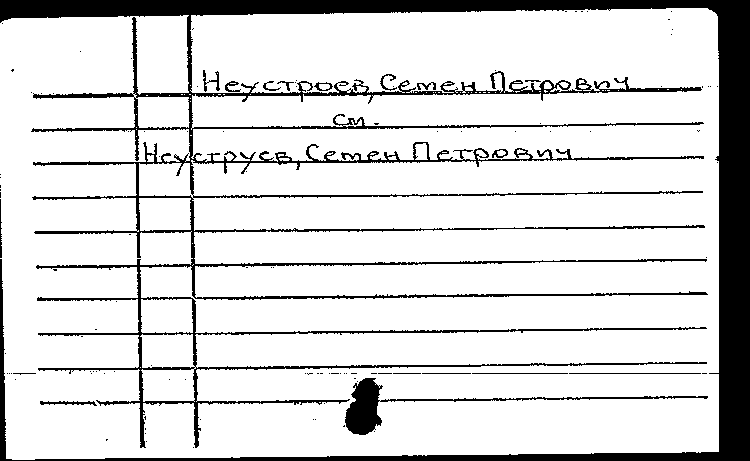 Неустроев, Семен Петрович
см.
Неуструев, Семен Петрович